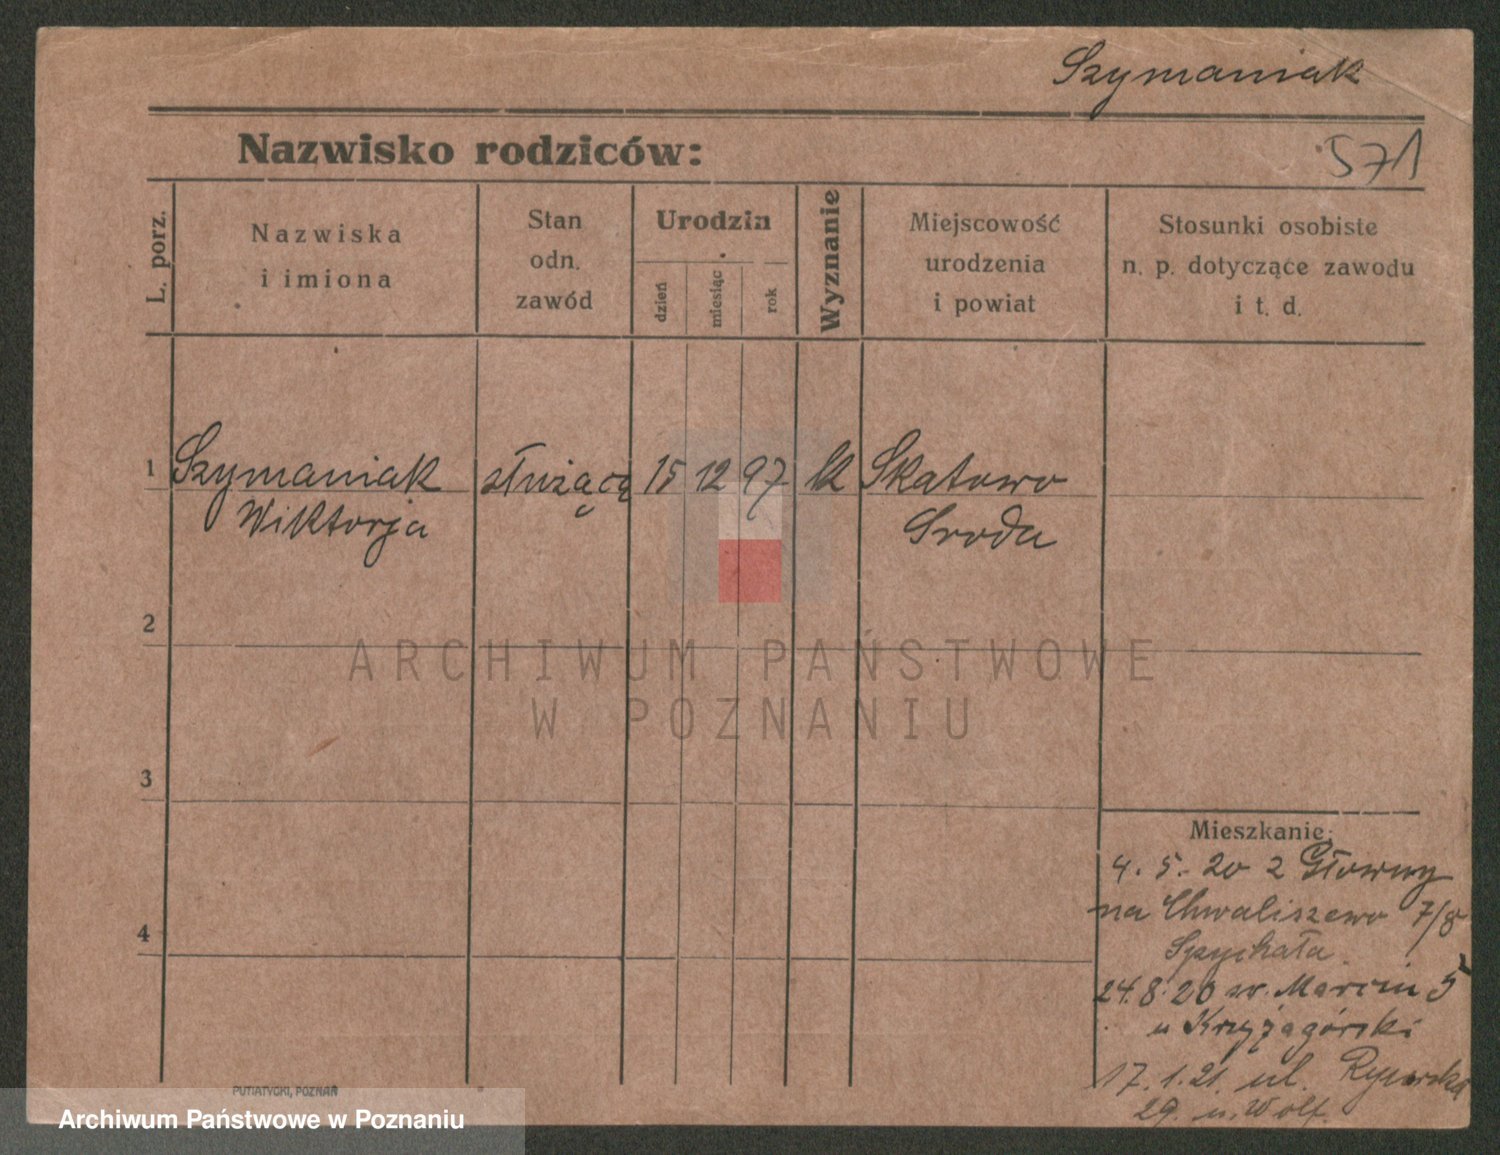 Szymaniak
571
Nazwisko rodziców:
L. porz.
Nazwiska
i imiona
Stan
odn.
zawód
Urodzin
dzień
miesiąc
rok
Wyznanie
Miejscowość
urodzenia
i powiat
Stosunki osobiste
n. p. dotyczące zawodu
i t. d.
1 Szymaniak służącą 15 12 97 k Skatowo
Wiktorja Sroda
2
ARCHIWUM PAŃSTWOWE
W POZNANIU
3
Mieszkanie:
4. 5. 20 z Głowny
na Chwaliszewo 7/8
Spychała
4
24.8.20 sw. Marcin 5
u Krzyżagórski
17.1.21. ul.
29. u. Wolf.
PUTIATYCKI, POZNAŃ
Archiwum Państwowe w Poznaniu